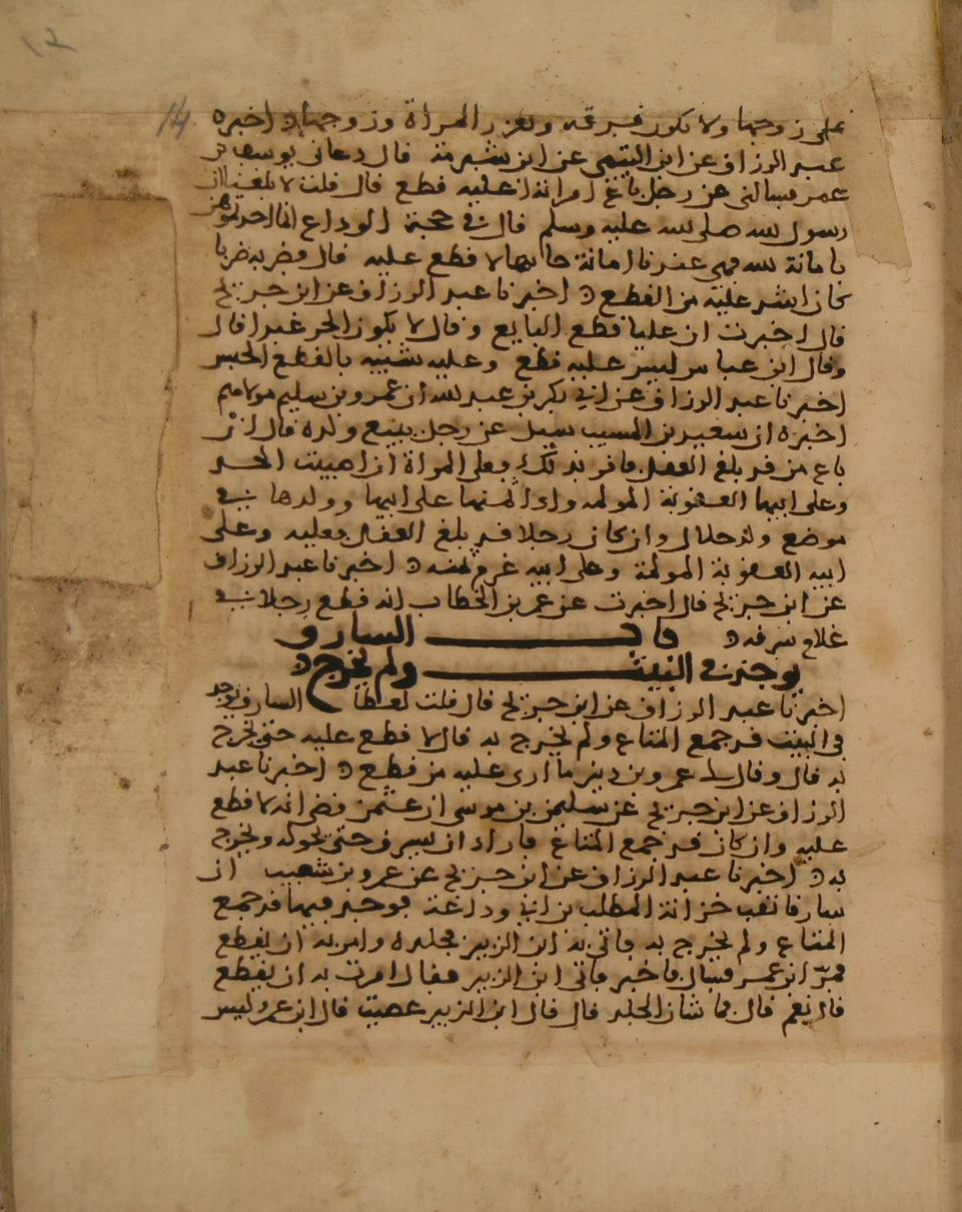 ١٢
14
على زوجها ولا تكون فرقة وتعزر المراة وزوجها اخبره
عبد الرزاق عن ابن التيمي عن ابن شبرمة قال دعاني يوسف بن
عمر فسالني عن رجل باع امراته اعليه قطع قال قلت لا بلغنا ان
رسول الله صلى الله عليه وسلم قال في حجة الوداع
بامانة الله فهي عندنا امانة خانها لا قطع عليه قال فضربه ضربا
كان اشد عليه من القطع اخبرنا عبد الرزاق عن ابن جريج
قال اخبرت ان عليا قطع البايع وقال لا يكون الحر عبدا قال
وقال ابن عباس ليس عليه قطع وعليه شبيه بالقطع الحبس
اخبرنا عبد الرزاق عن ابي بكر بن عبد الله ان عمرو بن سليم مولاهم
اخبره ان سعيد بن المسيب سيل عن رجل يبيع ولده قال ان
باع من قد بلغ العقل فاقر بذلك فعلى المراة ان اصيبت الحد
وعلى ابيها العقوبة المولمة واداء ثمنها على ابيها وولدها في
موضع ولد حلال وان كان رجلا قد بلغ العقل فعليه وعلى
ابيه العقوبة المولمة وعلى ابيه غرم ثمنه اخبرنا عبد الرزاق
عن ابن جريج قال اخبرت عن عمر بن الخطاب انه قطع رجلا في
غلام سرقه باب السارق
يوجد في البيت ولم يخرج
اخبرنا عبد الرزاق عن ابن جريج قال قلت لعطا السارق يوجد
في البيت قد جمع المتاع ولم يخرج به قال لا قطع عليه حتى يخرج
به قال وقال لي عمرو بن دينر ما ارى عليه من قطع اخبرنا عبد
الرزاق عن ابن جريج عن سليمن بن موسى ان عثمن قضى انه لا قطع
عليه وان كان قد جمع المتاع فاراد ان يسرق حتى يحوله ويخرج
به اخبرنا عبد الرزاق عن ابن جريج عن عمرو بن شعيب ان
سارقا نقب خزانة المطلب بن ابي وداعة فوجد فيها قد جمع
المتاع ولم يخرج به فاتي به ابن الزبير فجلده وامر به ان يقطع
فمر ابن عمر فسال فاخبر فاتى ابن الزبير فقال امرت به ان يقطع
قال نعم قال فما شان الجلد قال قال ابن الزبير غضبت قال ابن عمر وليس